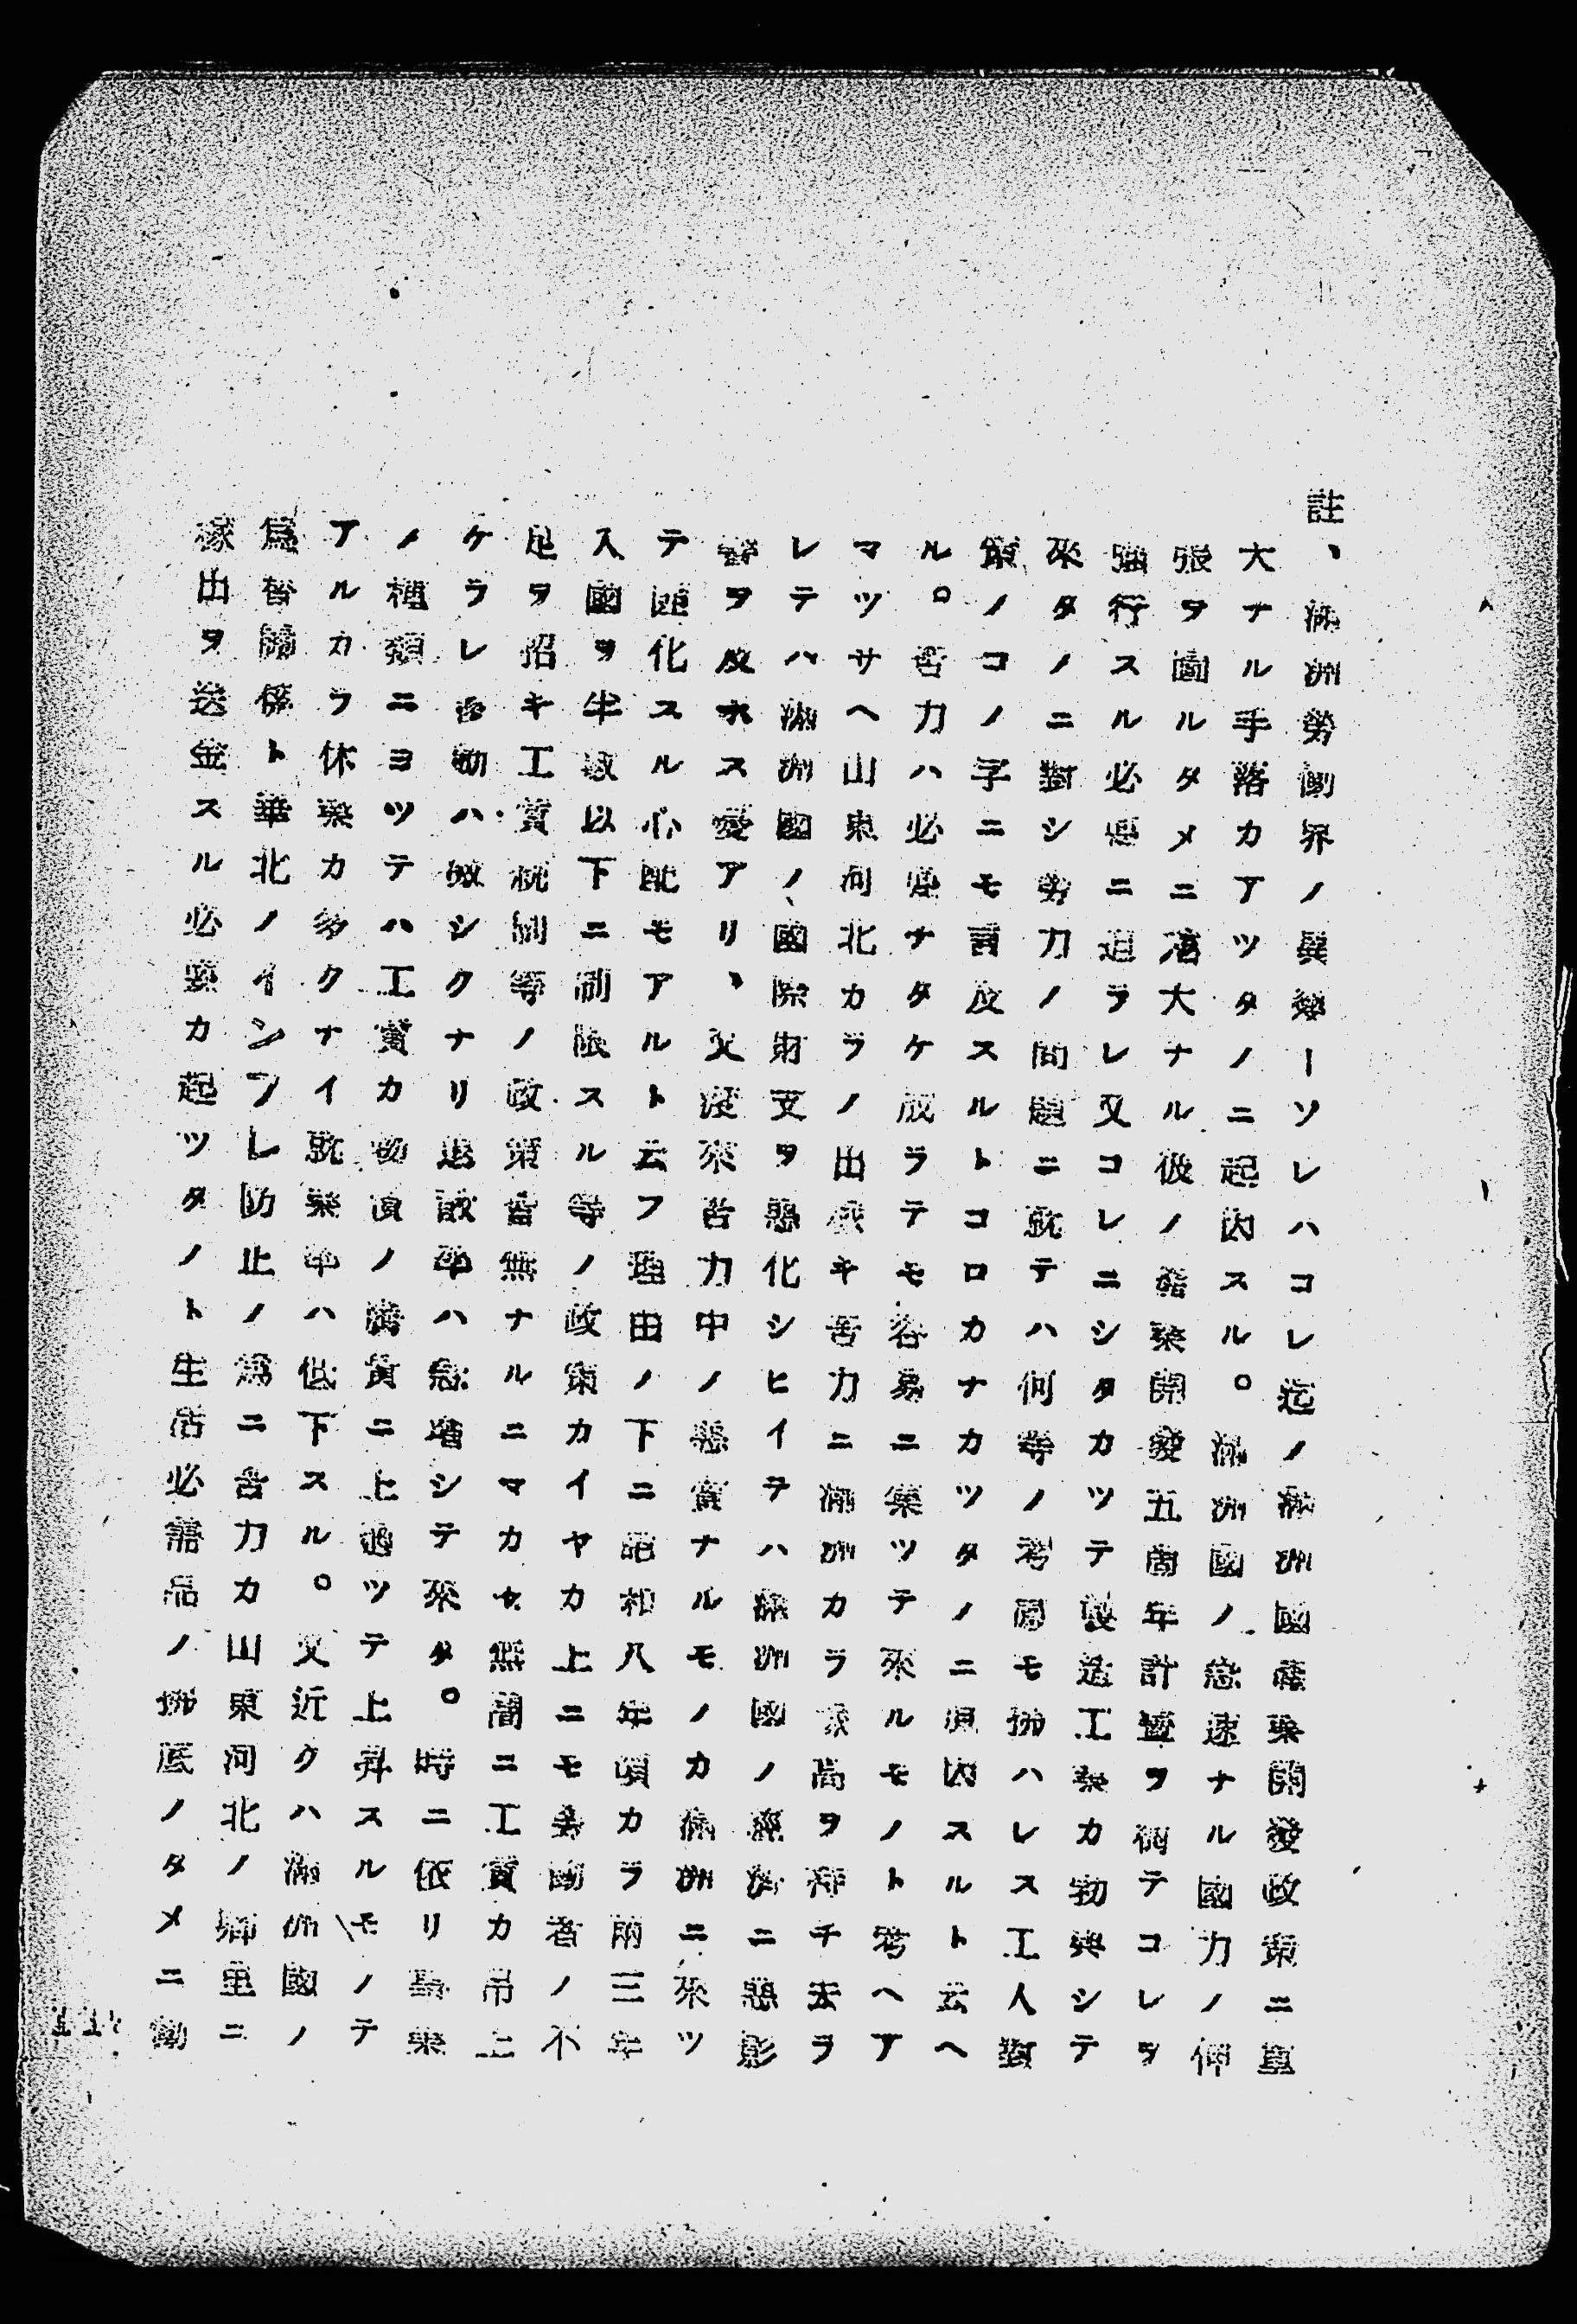 註、滿洲勞働界ノ異變ーソレハコレ迄ノ滿洲國產業開發政策ニ重
大ナル手落カアツタノニ起因スル。滿洲國ノ急速ナル國力ノ伸
張ヲ圖ルタメニ厖大ナル彼ノ產業開發五箇年計畫ヲ樹テコレヲ
強行スル必要ニ迫ラレ又コレニシタカツテ製造工業カ勃興シテ
來タノニ對シ勞力ノ問題ニ就テハ何等ノ考慮モ拂ハレス工人對
策ノコノ字ニモ言及スルトコロカナカツタノニ原因スルト云ヘ
ル。苦力ハ必要ナタケ成ラテモ容易ニ集ツテ來ルモノト考ヘア
マツサヘ山東河北カラノ出稼キ苦力ニ滿洲カラ家高ヲ持チ去ラ
レテハ滿洲國ノ國際財支ヲ惡化シヒイテハ滿洲國ノ經濟ニ惡影
響ヲ及ホス憂アリ、又從來苦力中ノ惡質ナルモノカ滿洲ニ來ツ
テ匪化スル心配モアルト云フ理由ノ下ニ昭和八年頃カラ兩三年
入國ヲ半數以下ニ制限スル等ノ政策カイヤカ上ニモ勞働者ノ不
足ヲ招キ工賃統制等ノ政策皆無ナルニマカセ無闇ニ工賃カ吊上
ケラレ移動ハ激シクナリ逃散率ハ急增シテ來タ。時ニ依リ職業
ノ種類ニヨツテハ工賃カ物價ノ騰貴ニ上廻ツテ上昇スルモノテ
アルカラ休業カ多クナイ就業率ハ低下スル。又近クハ滿洲國ノ
爲替關係ト華北ノインフレ防止ノ爲ニ苦力カ山東河北ノ鄉里ニ
稼出ヲ送金スル必要カ起ツタノト生活必需品ノ拂底ノタメニ働